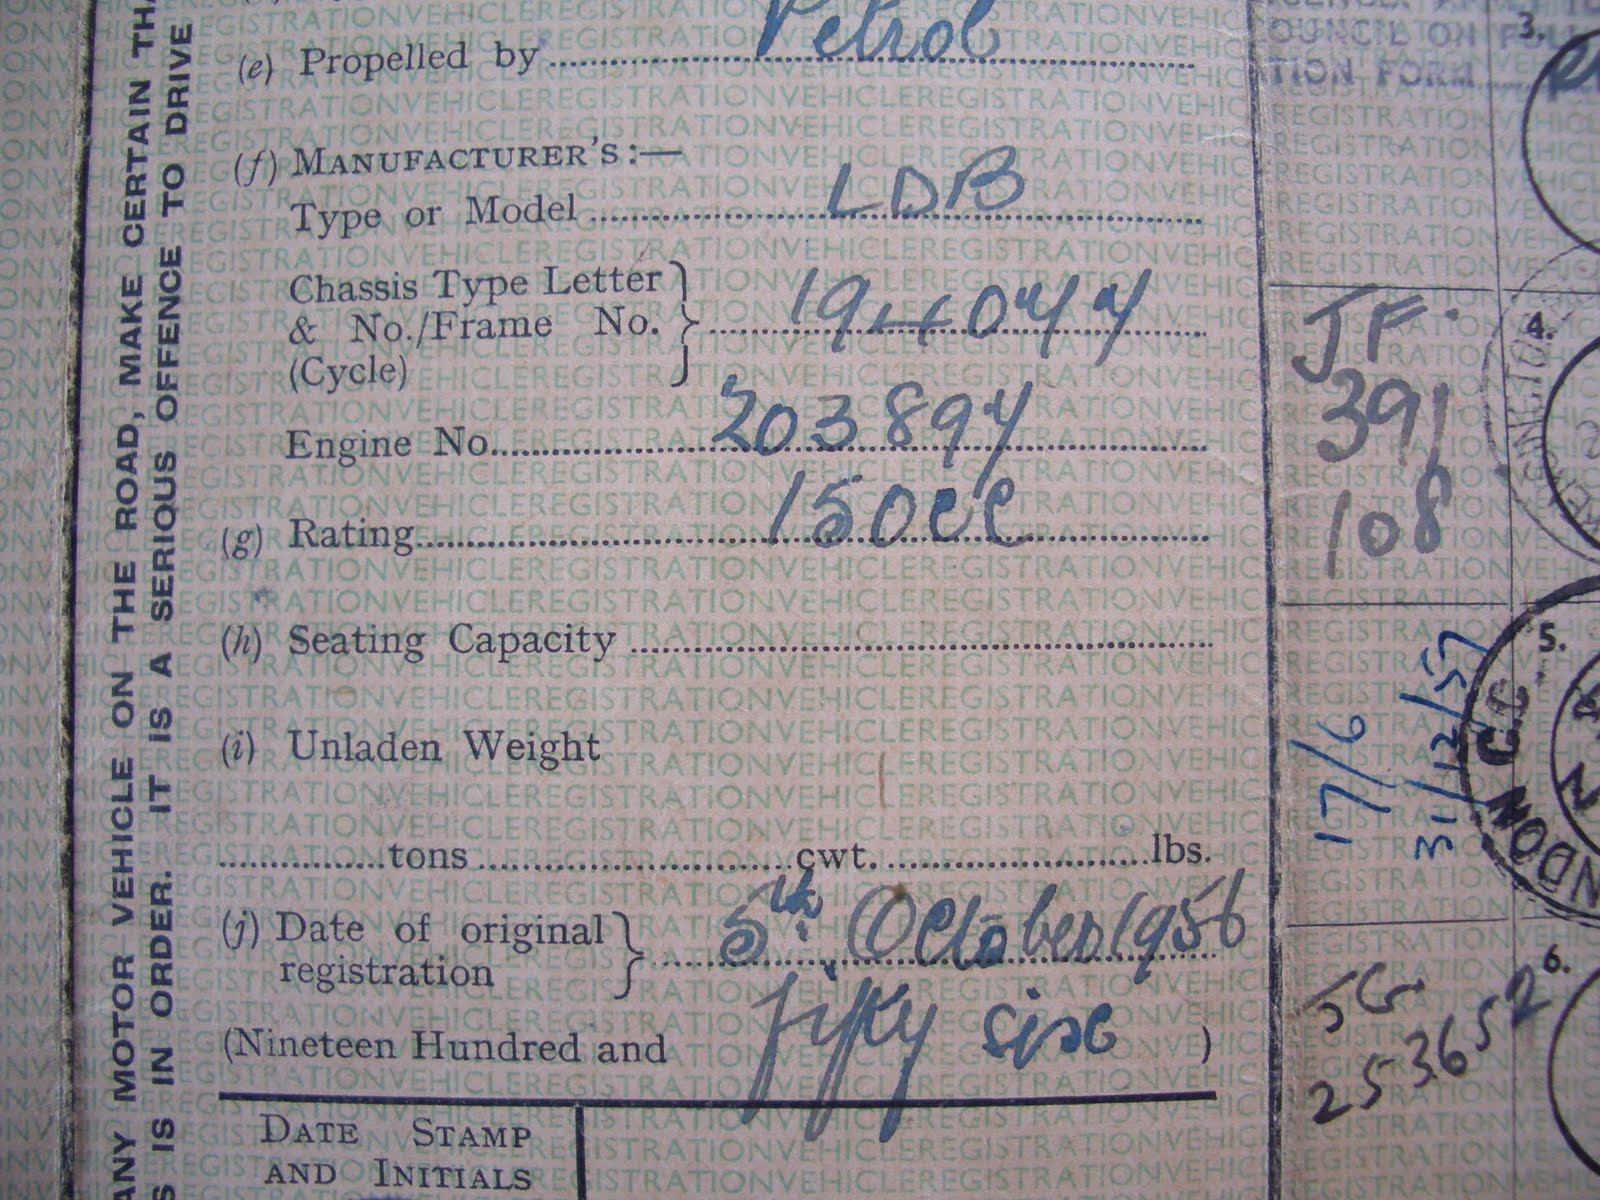 ANY MOTOR VEHICLE ON THE ROAD, MAKE CERTAIN THA
S IS IN ORDER. IT IS A SERIOUS OFFENCE TO DRIVE
(e) Propelled by Petrol
(f) MANUFACTURER'S:—
Type or Model LDB
Chassis Type Letter
& No./Frame No.
(Cycle)
194077
Engine No. 203897
(g) Rating 150cc
(h) Seating Capacity
(i) Unladen Weight
tons cwt. lbs.
(j) Date of original
registration
5th October 1956
(Nineteen Hundred and fifty six )
DATE STAMP
AND INITIALS
OUNCIL ON
TION FORM
3.
4.
JF.
391
108
5.
17/6
31/12/57
C.C.
NDON
6.
253652